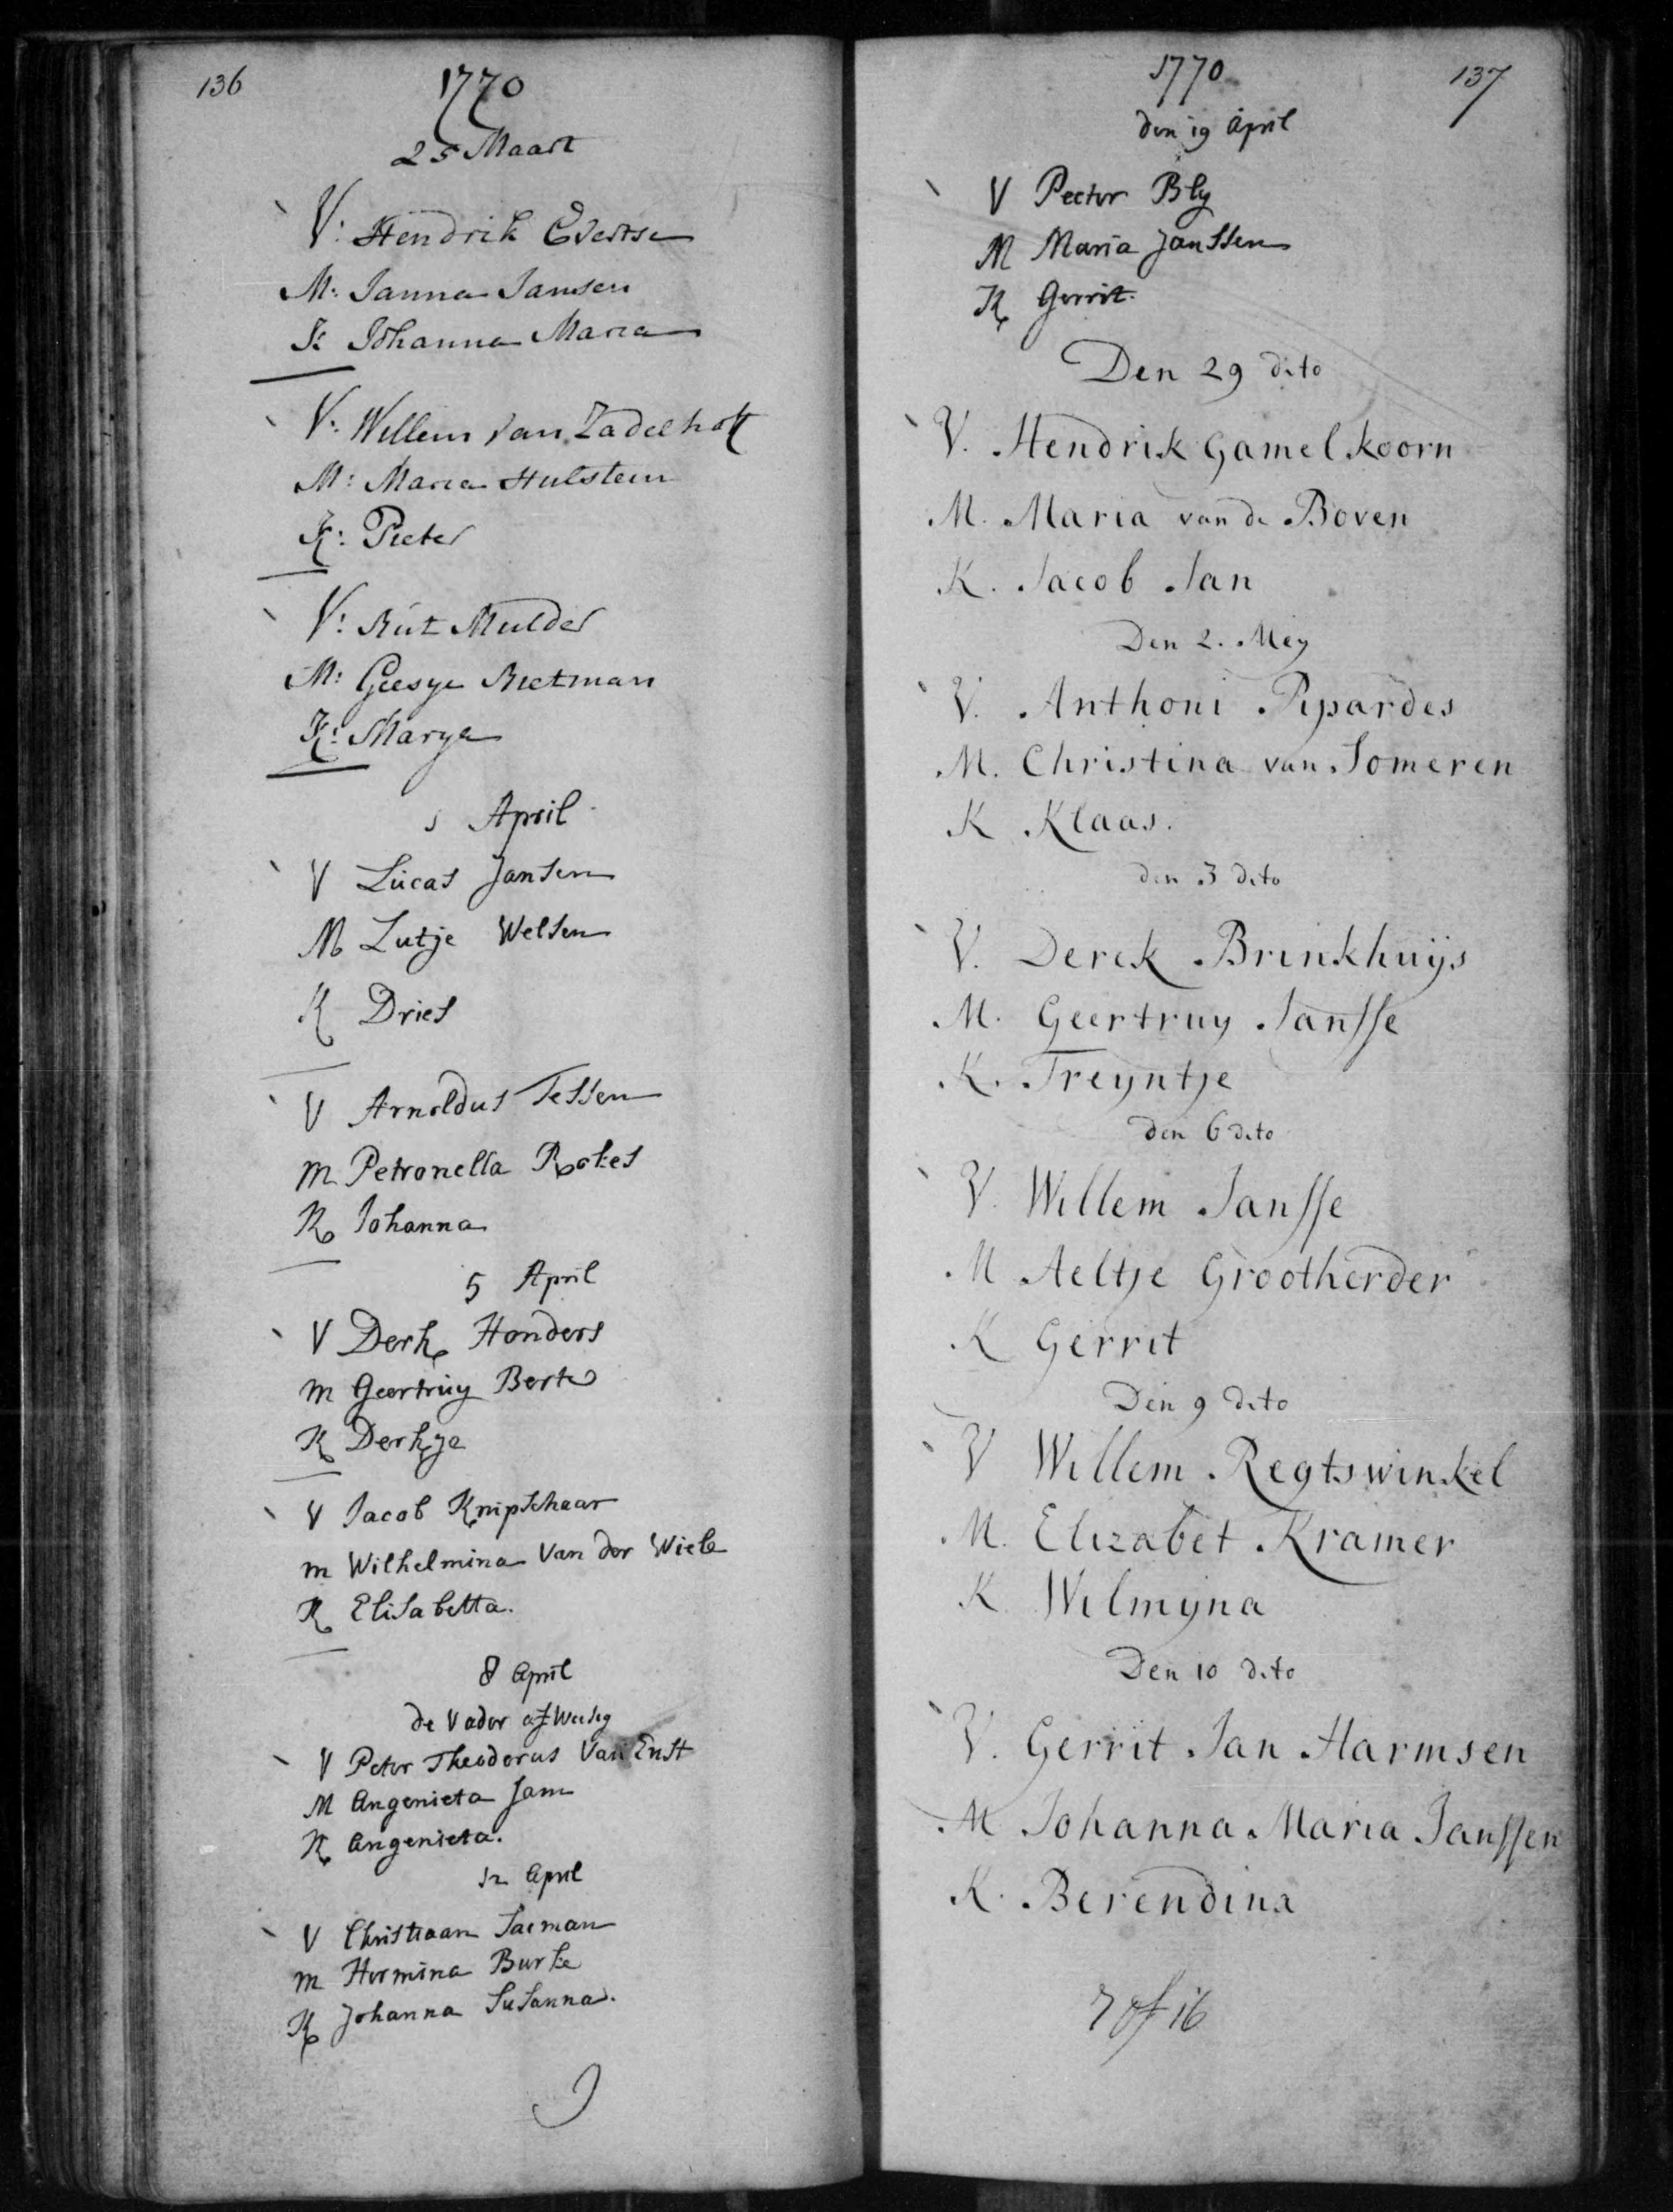 136
1770
25 Maart
V: Hendrik Evertse
M: Janna Jansen
K Johanna Maria
V: Willem van Zadelhoff
M: Maria Hulstein
K: Pieter
V: Rut Mulder
M: Geesye Rietman
K: Marya
1 April
V Lucas Jansen
M Lutje Welsen
K Dries
V Arnoldus Tessen
M Petronella Rokes
K Johanna
5 April
V Derk Honders
M Geertruy Berts
K Derkje
V Jacob Knipschaar
M Wilhelmina Van der Wiele
K Elisabetta.
8 April
de Vader afWesig
V Peter Theodorus Van Enst
M Angenieta Jans
K Angenieta.
12 April
V Christiaan Saeman
M Hermina Burke
K Johanna Susanna.
9
1770
137
den 19 April
V Peeter Bly
M Maria Janssen
K Gerrit.
Den 29 dito
V. Hendrik Gamelkoorn
M. Maria van de Boven
K. Jacob Jan
Den 2. Mey
V. Anthoni Pipardes
M. Christina van Someren
K Klaas.
den 3 dito
V. Derck Brinkhuijs
M. Geertruy Jansse
K. Treyntje
den 6 dito
V. Willem Jansse
M Aeltje Grootherder
K Gerrit
Den 9 dito
V Willem Regtswinkel
M. Elizabet Kramer
K Wilmijna
Den 10 dito
V. Gerrit Jan Harmsen
M Johanna Maria Janssen
K. Berendina
7 of 16